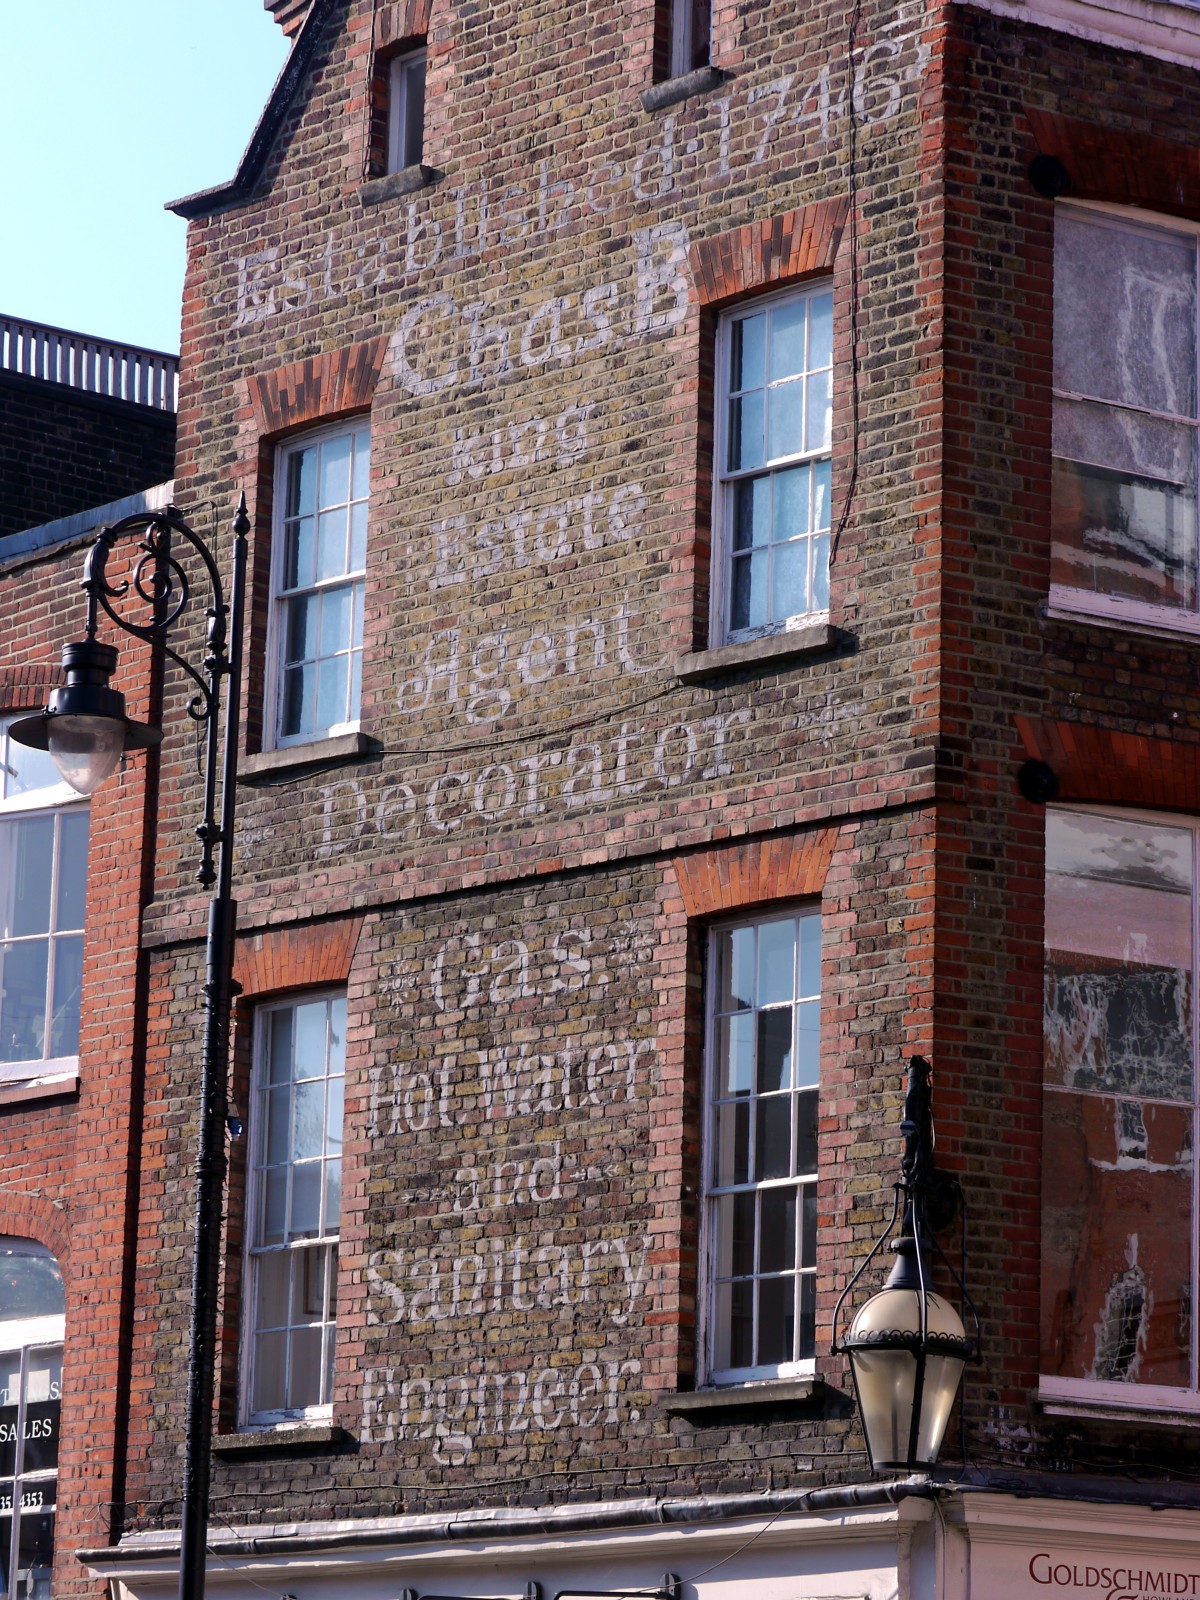 Established 1746
Chas B
King
Estate
Agent
Decorator
Gas.
Hot Water
and
Sanitary
Engineer.
SALES
4353
GOLDSCHMIDT
&